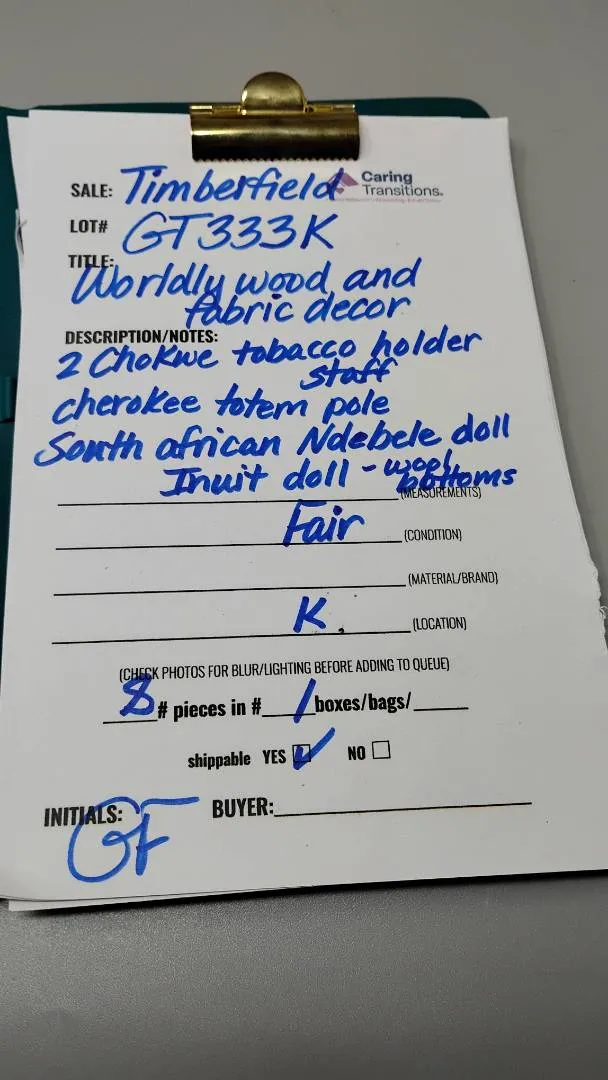 Caring
SALE: Timberfield Transitions.
LOT# GT333K
TITLE:
Worldly wood and
fabric decor
DESCRIPTION/NOTES:
2 Chokwe tobacco holder
staff
cherokee totem pole
South african Ndebele doll
Inuit doll - wool
bottoms
(MEASUREMENTS)
Fair (CONDITION)
(MATERIAL/BRAND)
K. (LOCATION)
(CHECK PHOTOS FOR BLUR/LIGHTING BEFORE ADDING TO QUEUE)
8 # pieces in # 1 boxes/bags/
shippable YES ✓ NO
INITIALS: GF BUYER: